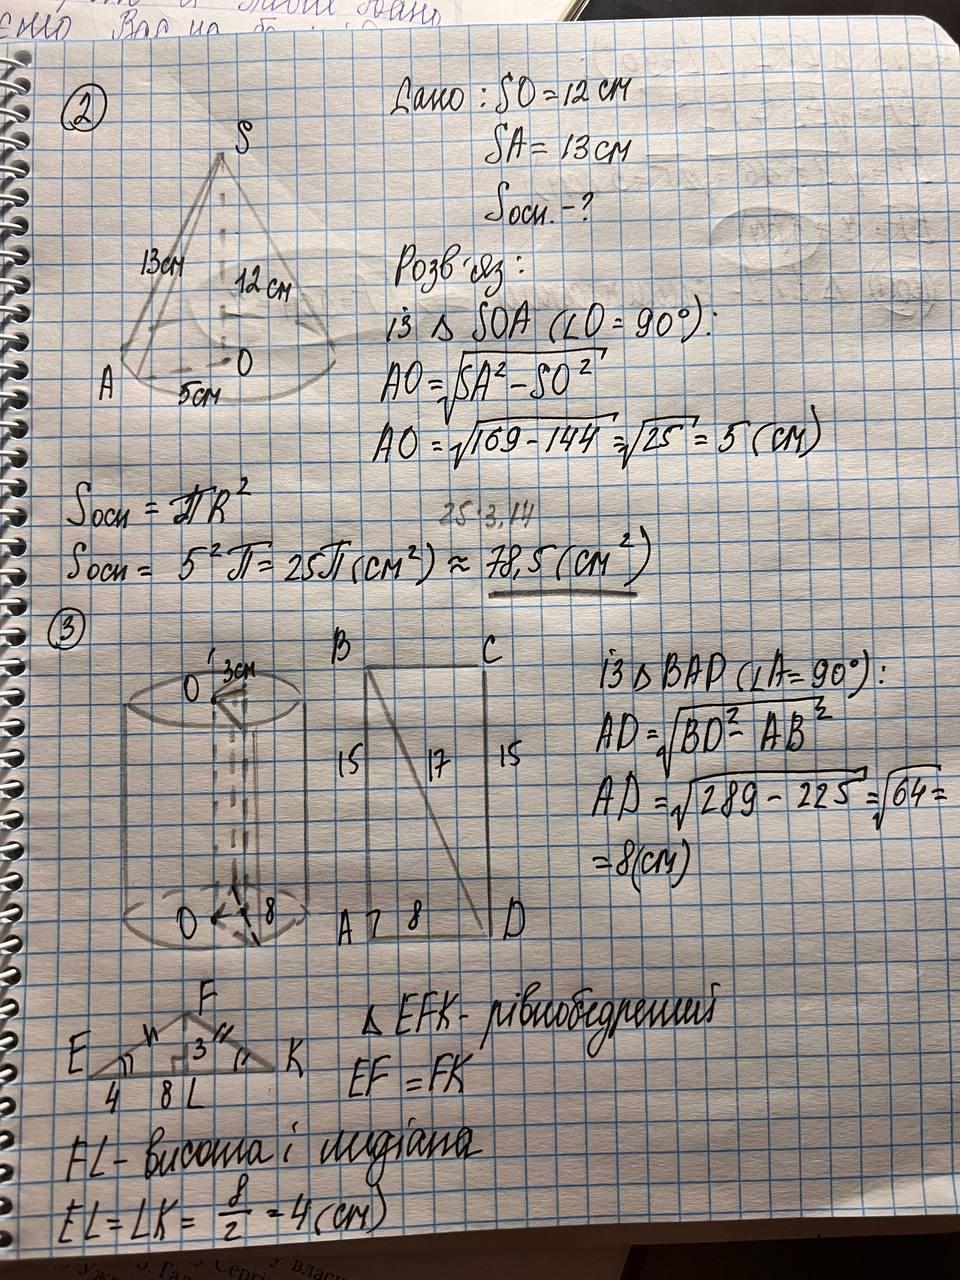 2
Дано: SO = 12 см
SA = 13 см
Sосн. - ?
S
13см
12 см
A
O
5см
Розв'яз:
Із Δ SOA (∠O = 90°):
AO = √SA² - SO²
AO = √169 - 144 = √25 = 5 (см)
Sосн = ПR²
25·3,14
Sосн = 5²П = 25П (см²) ≈ 78,5 (см²)
3
O' 3см
O 8
B C
15 17 15
A 8 D
Із Δ BAD (∠A = 90°):
AD = √BD² - AB²
AD = √289 - 225 = √64 =
= 8(см)
F
E 3 K
4 8 L
Δ EFK - рівнобедрений
EF = FK
FL - висота і медіана
EL = LK = 8/2 = 4 (см)